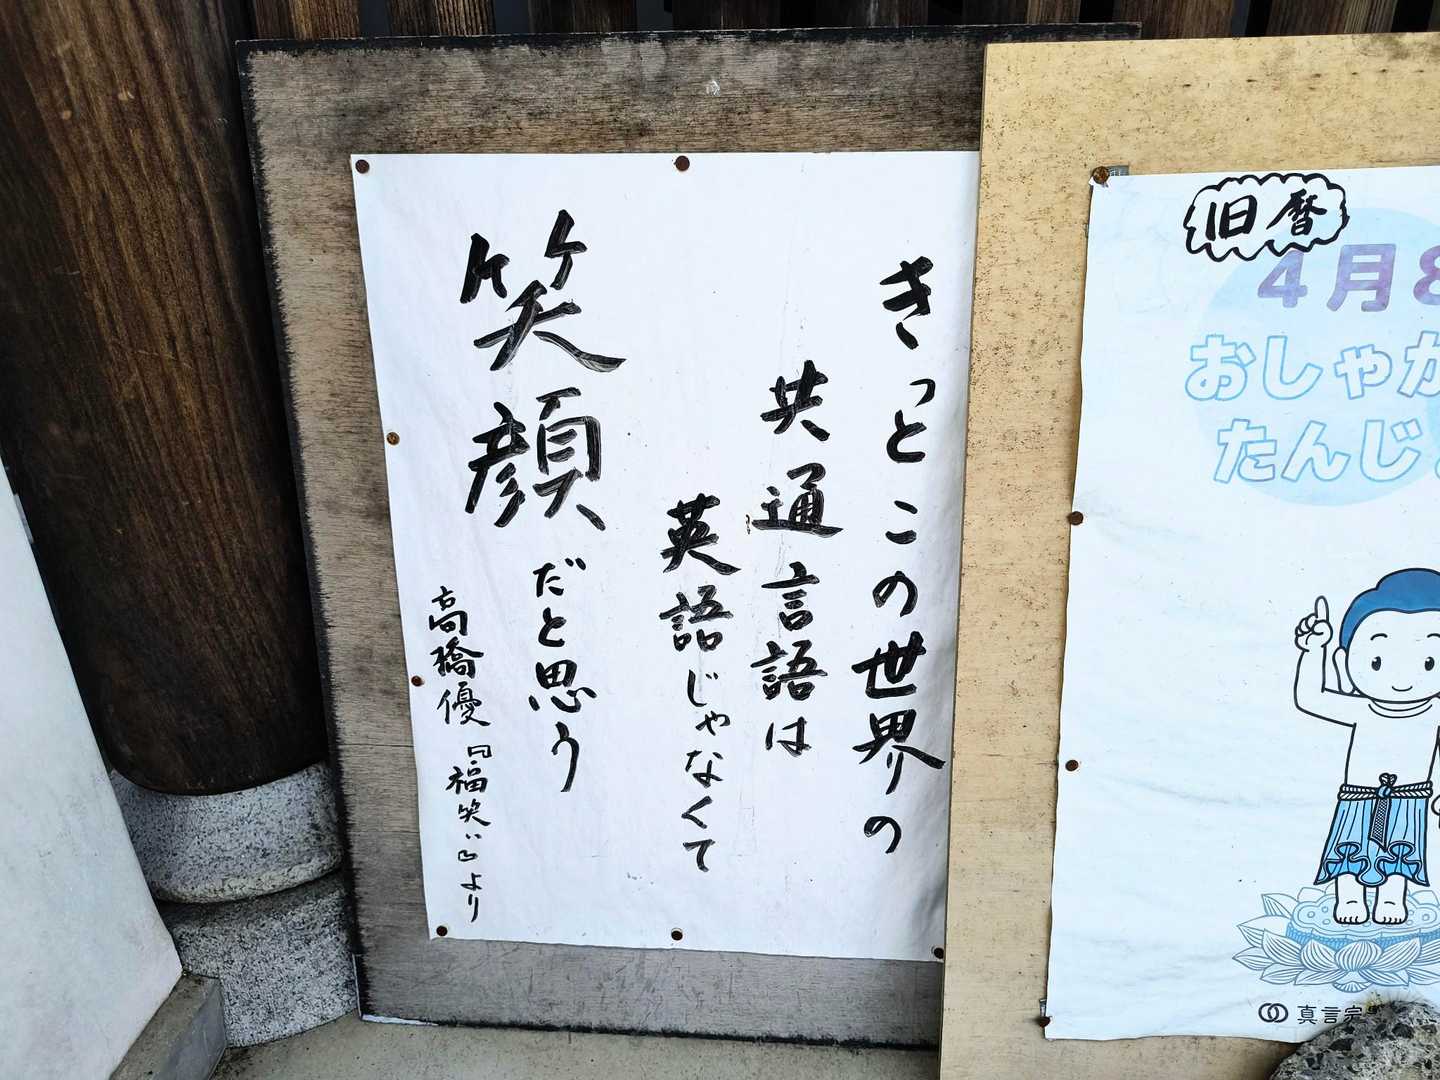 きっとこの世界の
共通言語は
英語じゃなくて
笑顔だと思う
高橋優『福笑い』より
旧暦
4月8
おしゃか
たんじ
真言宗